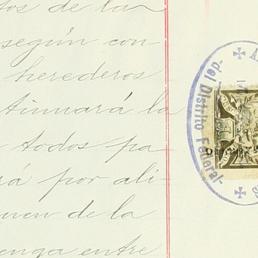 tos de la
según con
herederos
tinuará la
todos pa
rá por ali
men de la
enga entre
del Distrito Federal